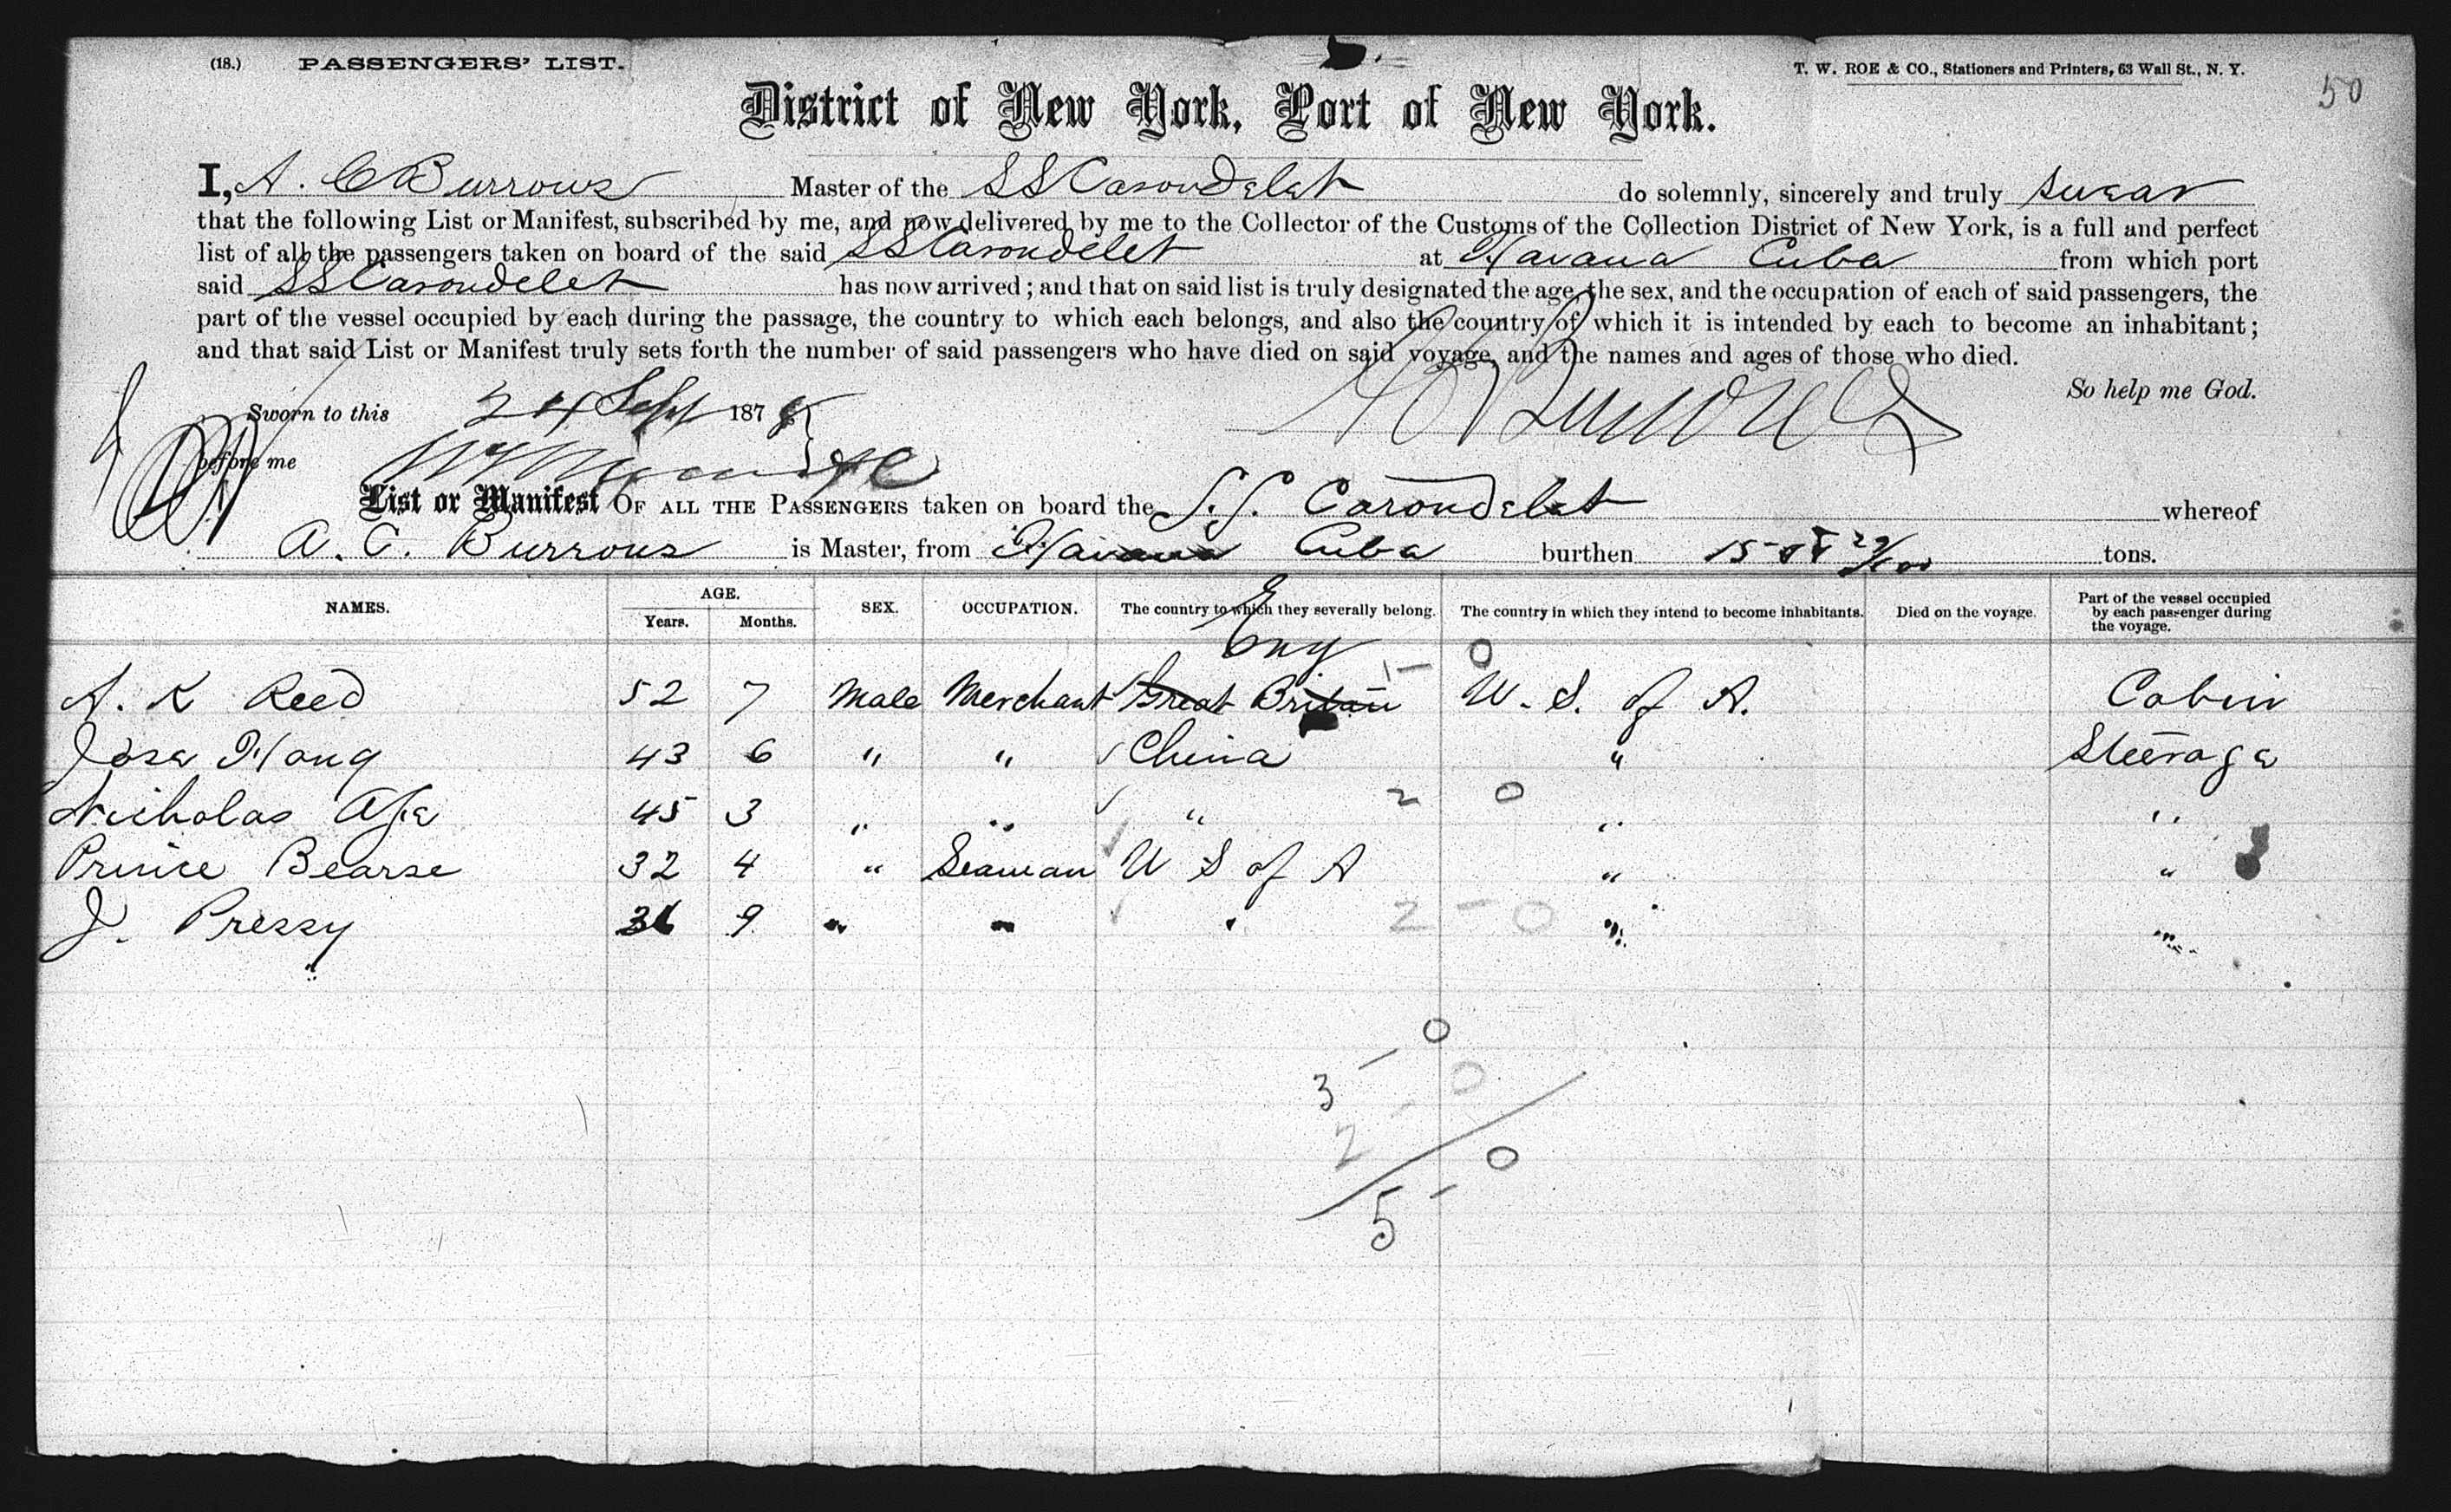 (18.) PASSENGERS' LIST. T. W. ROE & CO., Stationers and Printers, 63 Wall St., N. Y.
50
District of New York, Port of New York.
I, A. C Burrows Master of the SS Carondelet do solemnly, sincerely and truly swear
that the following List or Manifest, subscribed by me, and now delivered by me to the Collector of the Customs of the Collection District of New York, is a full and perfect
list of all the passengers taken on board of the said SS Carondelet at Havana Cuba from which port
said SS Carondelet has now arrived; and that on said list is truly designated the age, the sex, and the occupation of each of said passengers, the
part of the vessel occupied by each during the passage, the country to which each belongs, and also the country of which it is intended by each to become an inhabitant;
and that said List or Manifest truly sets forth the number of said passengers who have died on said voyage, and the names and ages of those who died.
So help me God.
Sworn to this 24 Sept 1878
A C Burrows
before me
List or Manifest OF ALL THE PASSENGERS taken on board the S.S. Carondelet whereof
A. C. Burrows is Master, from Havana Cuba burthen 1508 29/100 tons.
NAMES. AGE. Years. Months. SEX. OCCUPATION. The country to which they severally belong. The country in which they intend to become inhabitants. Died on the voyage. Part of the vessel occupied by each passenger during the voyage.
Eng
A. K Reed 52 7 Male Merchant Great Britain 1 – 0 U. S. of A. Cabin
Jose Hong 43 6 " " China " Steerage
Nicholas Afa 45 3 " " " 2 0 " "
Prince Bearse 32 4 " Seaman U S of A " "
J. Pressy 36 9 " " " 2 – 0 " "
"
3 – 0
2 – 0
5 – 0